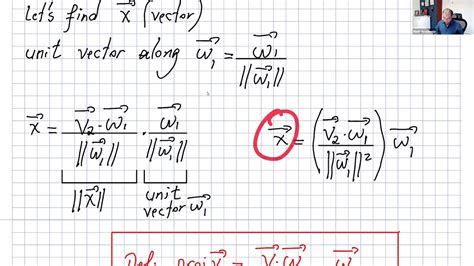 Let's find x⃗ (vector)
unit vector along w⃗₁ = w⃗₁ / ||w⃗₁||
x⃗ = (v⃗₂·w⃗₁ / ||w⃗₁||) · (w⃗₁ / ||w⃗₁||)
||x⃗||
unit vector w⃗₁
x⃗ = (v⃗₂·w⃗₁ / ||w⃗₁||²) w⃗₁